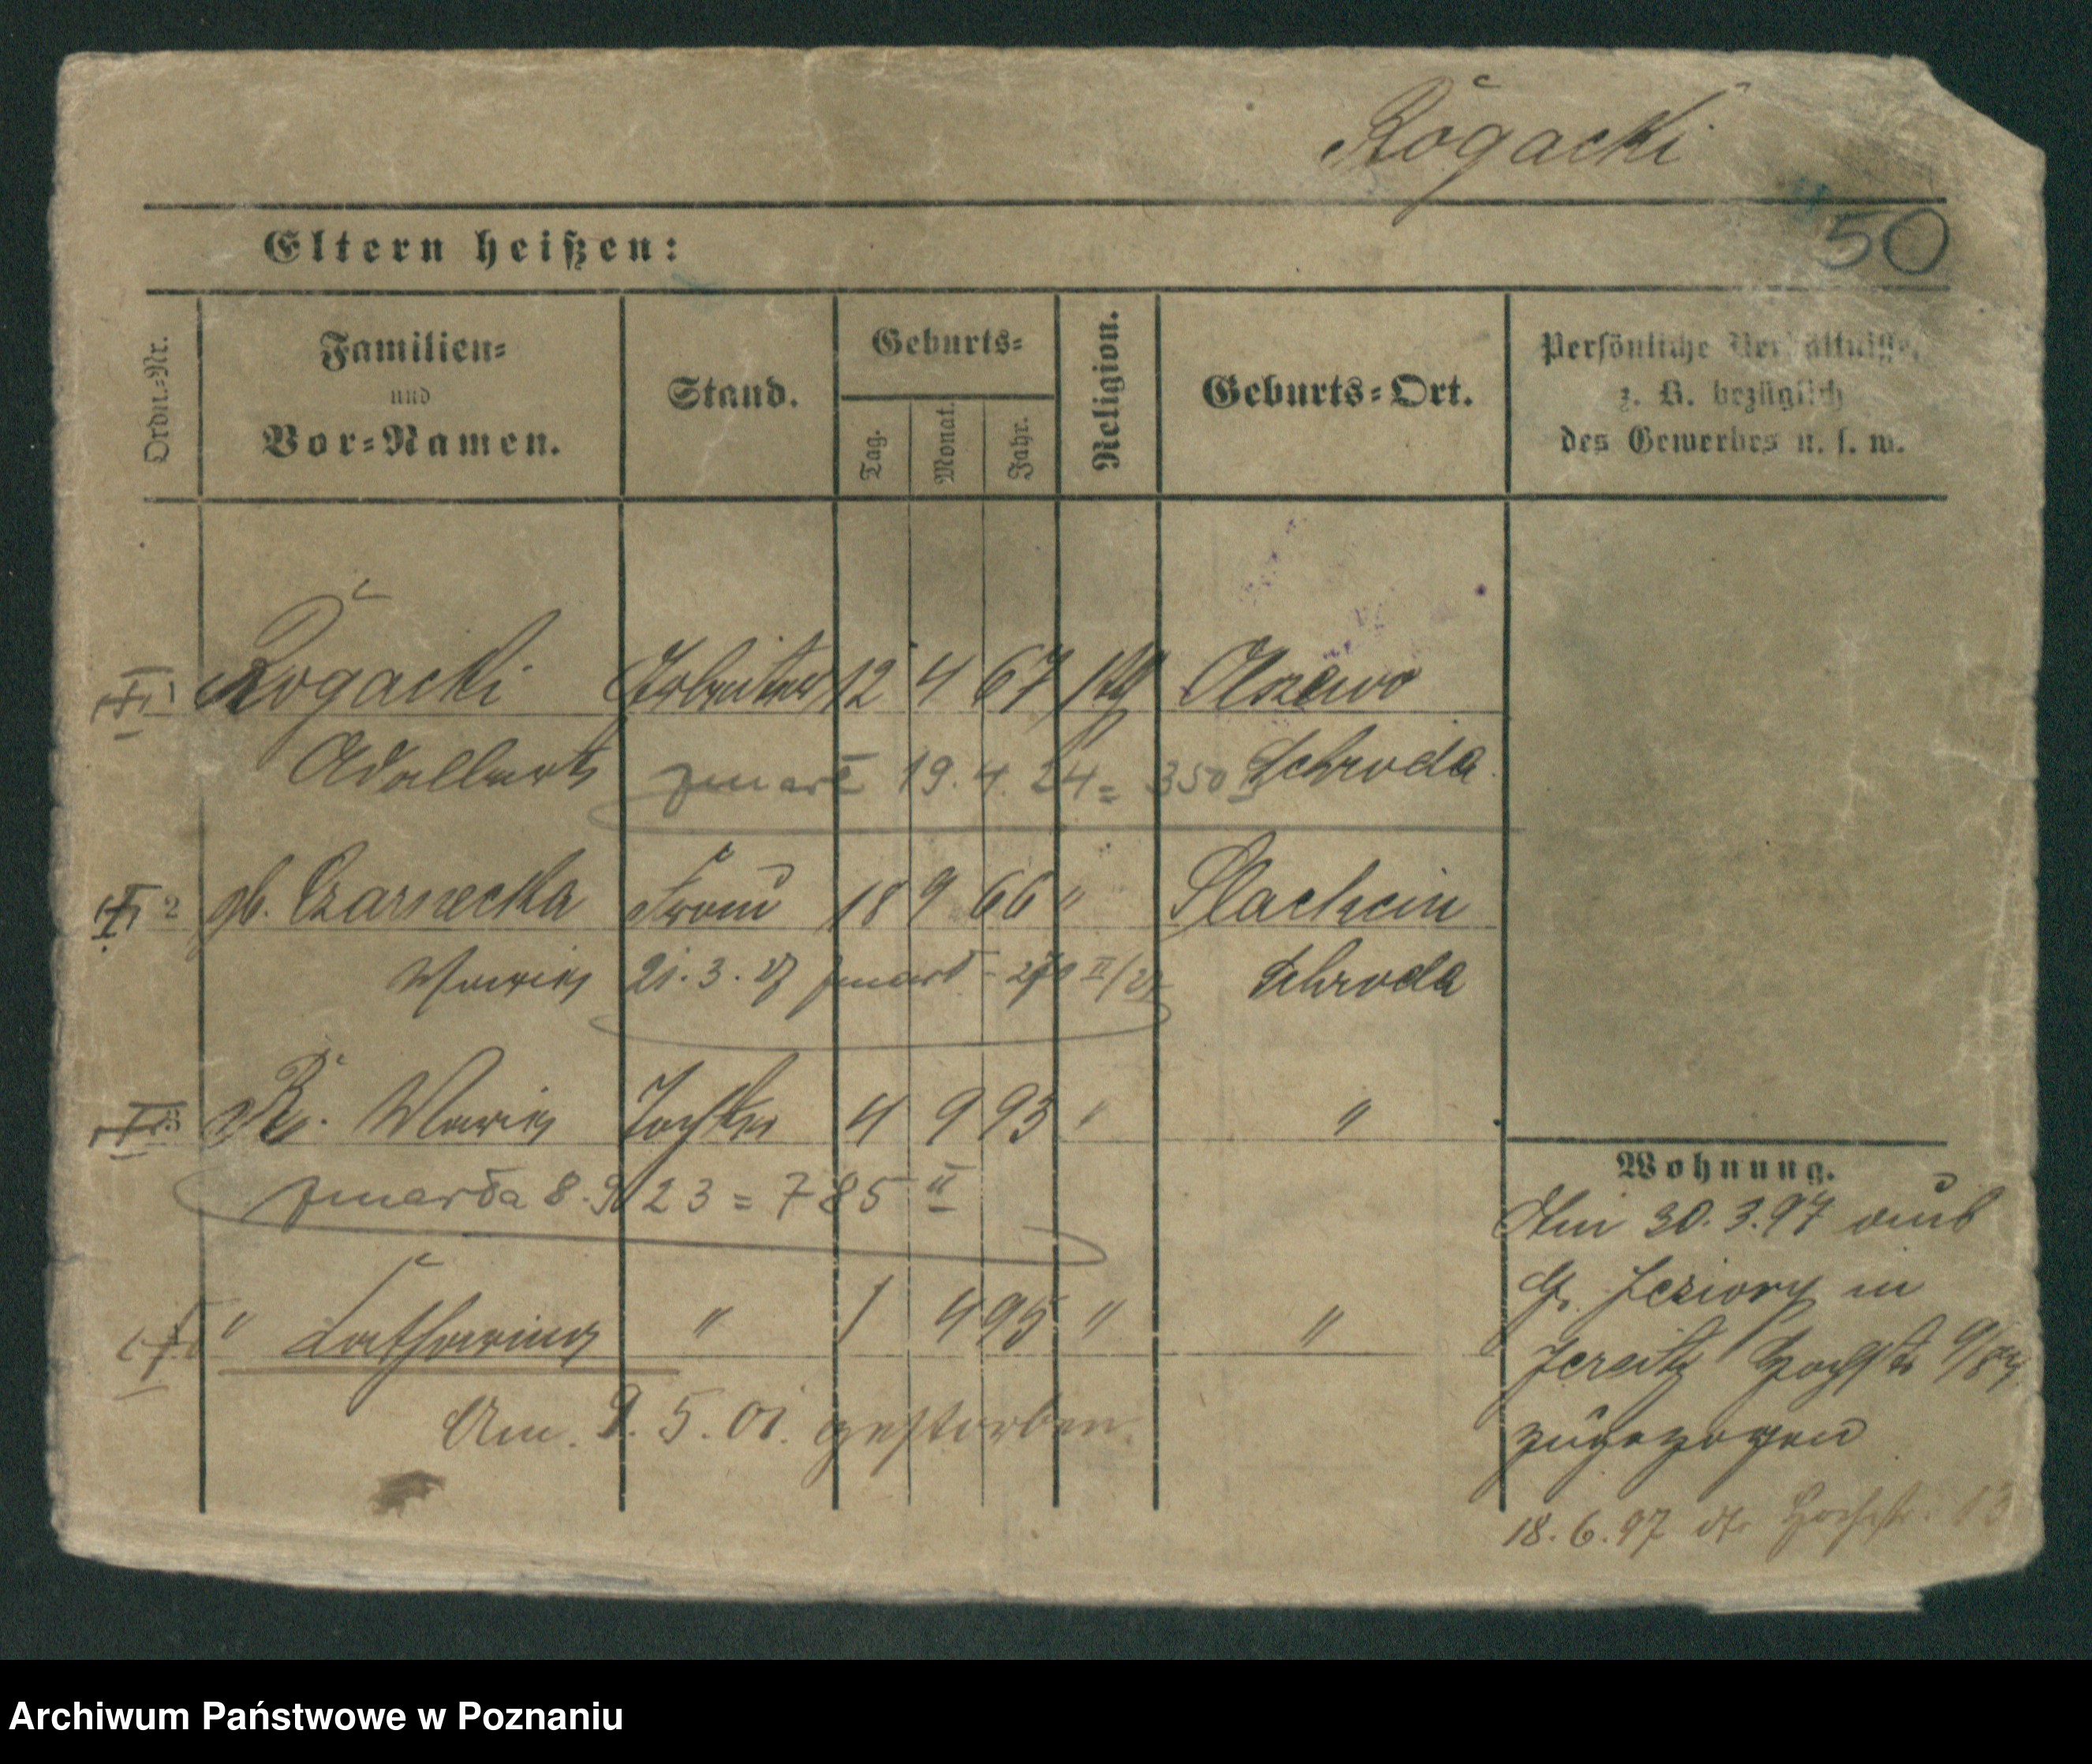 Rogacki
50
Eltern heißen:
Ordn.-Nr.
Familien-
und
Vor-Namen.
Stand.
Geburts-
Tag.
Monat.
Jahr.
Religion.
Geburts-Ort.
Persönliche Verhältnisse,
z. B. bezüglich
des Gewerbes u. s. w.
1 Rogacki Arbeiter 12 4 67 kth Olszewo
Adalbert zmarł 19.4.24 = 350 Schroda
2 gb. Czarnecka Frau 18 9 66 " Slachcin
Marie 21.3.27 zmarł - II/27 Schroda
3 R. Marie Tochter 4 9 93 " "
zmarła 8.9.23 = 785 II
" Catharina " 1 4 95 " "
Am. 9.5.01. gestorben
Wohnung.
Am 30.3.97 aus
Gr. Jeziory in
Jersitz
zugezogen
18.6.97 Hochstr. 13
Archiwum Państwowe w Poznaniu